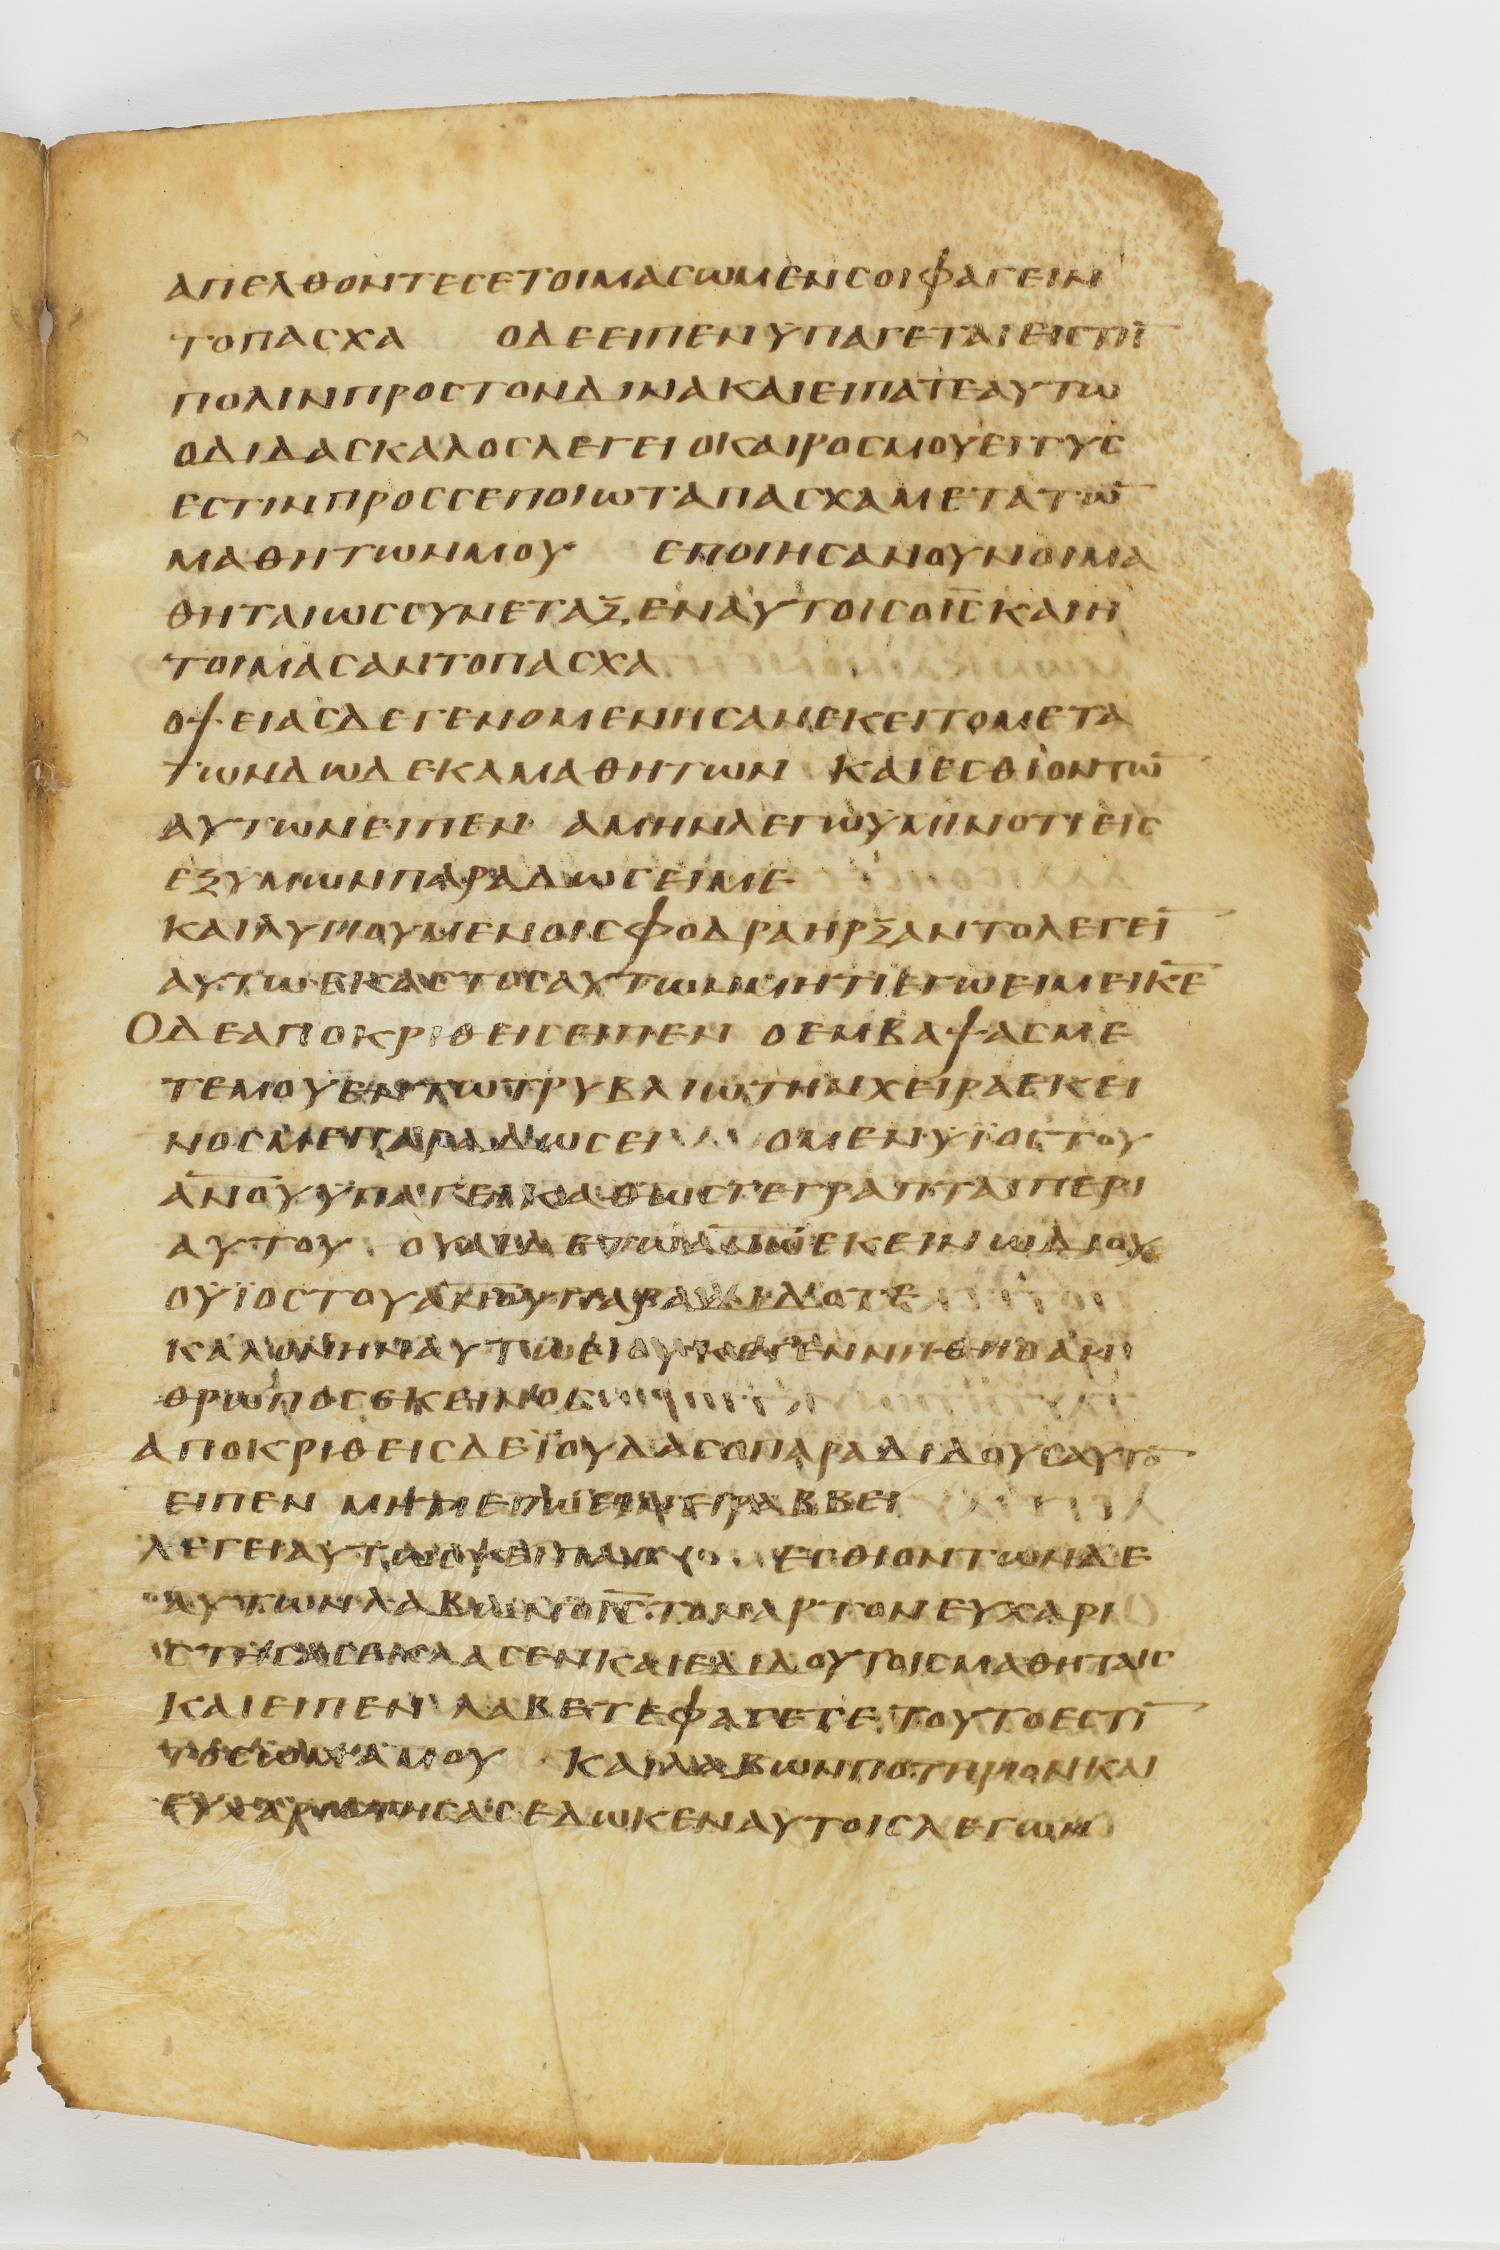 ΑΠΕΛΘΟΝΤΕϹΕΤΟΙΜΑϹΩΜΕΝϹΟΙΦΑΓΕΙΝ
ΤΟΠΑϹΧΑ ΟΔΕΕΙΠΕΝΥΠΑΓΕΤΑΙΕΙϹΤΗ̅
ΠΟΛΙΝΠΡΟϹΤΟΝΔΙΝΑΚΑΙΕΙΠΑΤΕΑΥΤΩ
ΟΔΙΔΑϹΚΑΛΟϹΛΕΓΕΙΟΚΑΙΡΟϹΜΟΥΕΓΓΥϹ
ΕϹΤΙΝΠΡΟϹϹΕΠΟΙΩΤΑΠΑϹΧΑΜΕΤΑΤΩ̅
ΜΑΘΗΤΩΝΜΟΥ ΕΠΟΙΗϹΑΝΟΥΝΟΙΜΑ
ΘΗΤΑΙΩϹϹΥΝΕΤΑΞΕΝΑΥΤΟΙϹΟΙ̅Ϲ̅ΚΑΙΗ
ΤΟΙΜΑϹΑΝΤΟΠΑϹΧΑ
ΟΨΕΙΑϹΔΕΓΕΝΟΜΕΝΗϹΑΝΕΚΕΙΤΟΜΕΤΑ
ΤΩΝΔΩΔΕΚΑΜΑΘΗΤΩΝ ΚΑΙΕϹΘΙΟΝΤΩ̅
ΑΥΤΩΝΕΙΠΕΝ ΑΜΗΝΛΕΓΩΥΜΙΝΟΤΙΕΙϹ
ΕΞΥΜΩΝΠΑΡΑΔΩϹΕΙΜΕ
ΚΑΙΛΥΠΟΥΜΕΝΟΙϹΦΟΔΡΑΗΡΞΑΝΤΟΛΕΓΕΙ̅
ΑΥΤΩΕΚΑϹΤΟϹΑΥΤΩΝΜΗΤΙΕΓΩΕΙΜΕΙΚ̅Ε̅
ΟΔΕΑΠΟΚΡΙΘΕΙϹΕΙΠΕΝ ΟΕΜΒΑΨΑϹΜΕ
ΤΕΜΟΥΕΝΤΩΤΡΥΒΛΙΩΤΗΝΧΕΙΡΑΕΚΕΙ
ΝΟϹΜΕΠΑΡΑΔΩϹΕΙ ΟΜΕΝΥΙΟϹΤΟΥ
Α̅Ν̅Ο̅Υ̅ΥΠΑΓΕΙΚΑΘΩϹΓΕΓΡΑΠΤΑΙΠΕΡΙ
ΑΥΤΟΥ ΟΥΑΙΔΕΤΩΑ̅Ν̅Ω̅ΕΚΕΙΝΩΔΙΟΥ
ΟΥΙΟϹΤΟΥΑ̅Ν̅Ο̅Υ̅ΠΑΡΑΔΙΔΟΤΕ
ΚΑΛΟΝΗΝΑΥΤΩΕΙΟΥΚΕΓΕΝΝΗΘΗΟΑΝ
ΘΡΩΠΟϹΕΚΕΙΝΟϹ
ΑΠΟΚΡΙΘΕΙϹΔΕΙΟΥΔΑϹΟΠΑΡΑΔΙΔΟΥϹΑΥΤΟ̅
ΕΙΠΕΝ ΜΗΤΙΕΓΩΕΙΜΕΙΡΑΒΒΕΙ
ΛΕΓΕΙΑΥΤΩϹΥΕΙΠΑϹ ΕϹΘΙΟΝΤΩΝΔΕ
ΑΥΤΩΝΛΑΒΩΝΟΙ̅Ϲ̅ΤΟΝΑΡΤΟΝΕΥΧΑΡΙ
ϹΤΗϹΑϹΕΚΛΑϹΕΝΚΑΙΕΔΙΔΟΥΤΟΙϹΜΑΘΗΤΑΙϹ
ΚΑΙΕΙΠΕΝ ΛΑΒΕΤΕΦΑΓΕΤΕΤΟΥΤΟΕϹΤΙ̅
ΤΟϹΩΜΑΜΟΥ ΚΑΙΛΑΒΩΝΠΟΤΗΡΙΟΝΚΑΙ
ΕΥΧΑΡΙϹΤΗϹΑϹΕΔΩΚΕΝΑΥΤΟΙϹΛΕΓΩΝ